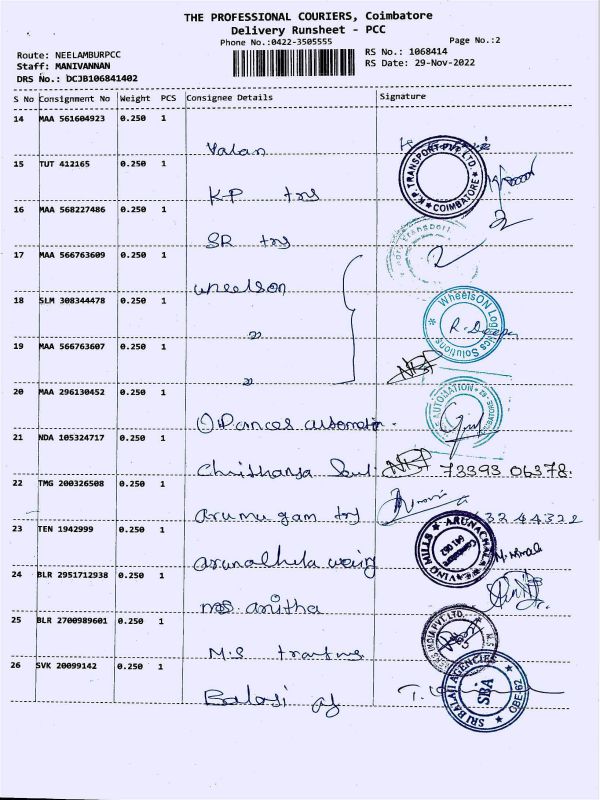 THE PROFESSIONAL COURIERS, Coimbatore
Delivery Runsheet - PCC
Phone No.:0422-3505555
Page No.:2
Route: NEELAMBURPCC
RS No.: 1068414
Staff: MANIVANNAN
RS Date: 29-Nov-2022
DRS No.: DCJB106841402
S No Consignment No Weight PCS Consignee Details Signature
14 MAA 561604923 0.250 1
Valan
15 TUT 412165 0.250 1
K.P TRANSPORT PVT. LTD. COIMBATORE
K.P try
16 MAA 568227486 0.250 1
SR try
17 MAA 566763609 0.250 1
Transport
wheelson
18 SLM 308344478 0.250 1
WheelsON Logistics Solutions
R. Deepa
"
19 MAA 566763607 0.250 1
NRP
"
20 MAA 296130452 0.250 1
AUTOMATION
21 NDA 105324717 0.250 1
NRP 73393 06378.
22 TMG 200326508 0.250 1
Arumugam try
23 TEN 1942999 0.250 1
ARUNACHALA VINO MILLS Coimbatore 641 062
24 BLR 2951712938 0.250 1
mrs anitha
25 BLR 2700989601 0.250 1
INDIA PVT. LTD. M.S
M.S
26 SVK 20099142 0.250 1
Balaji
SRI BALAJI AGENCIES CBE-62
SBA